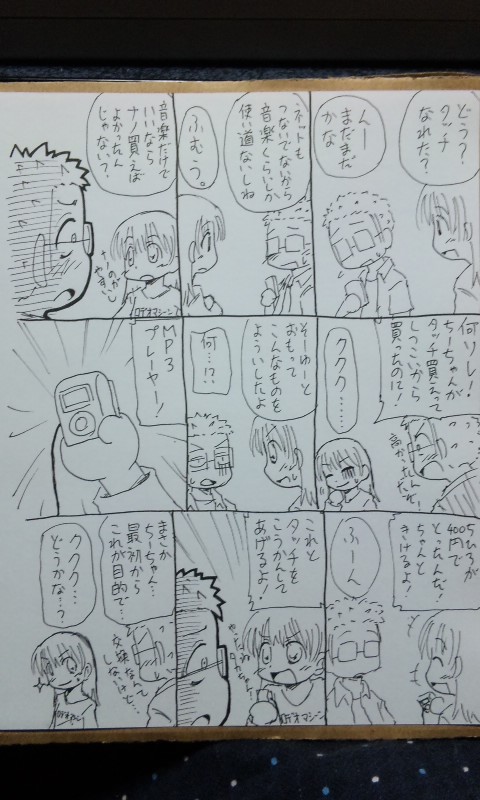 どう？
タッチ
なれた？
んー
まだまだ
かな
ネットも
つないでないから
音楽くらいしか
使い道ないしね
ふむう。
音楽だけで
いいなら
ナノ買えば
よかったん
じゃない？
ロデオマシーン
何ソレ！
ちーちゃんが
タッチ買えって
しつこいから
買ったのに！
高かったんだぞ！
ククク……
そーゆーと
おもって
こんなものを
よういしたよ
何…!?
MP3
プレーヤー！
ちひろが
400円で
とったんだ！
ちゃんと
きけるよ！
ふーん
これと
タッチを
こうかんして
あげるよ！
ロデオマシーン
まさか
ちーちゃん…
最初から
これが目的で…
交換なんて
しないけど…
ククク…
どうかな…？
ロデオマシーン